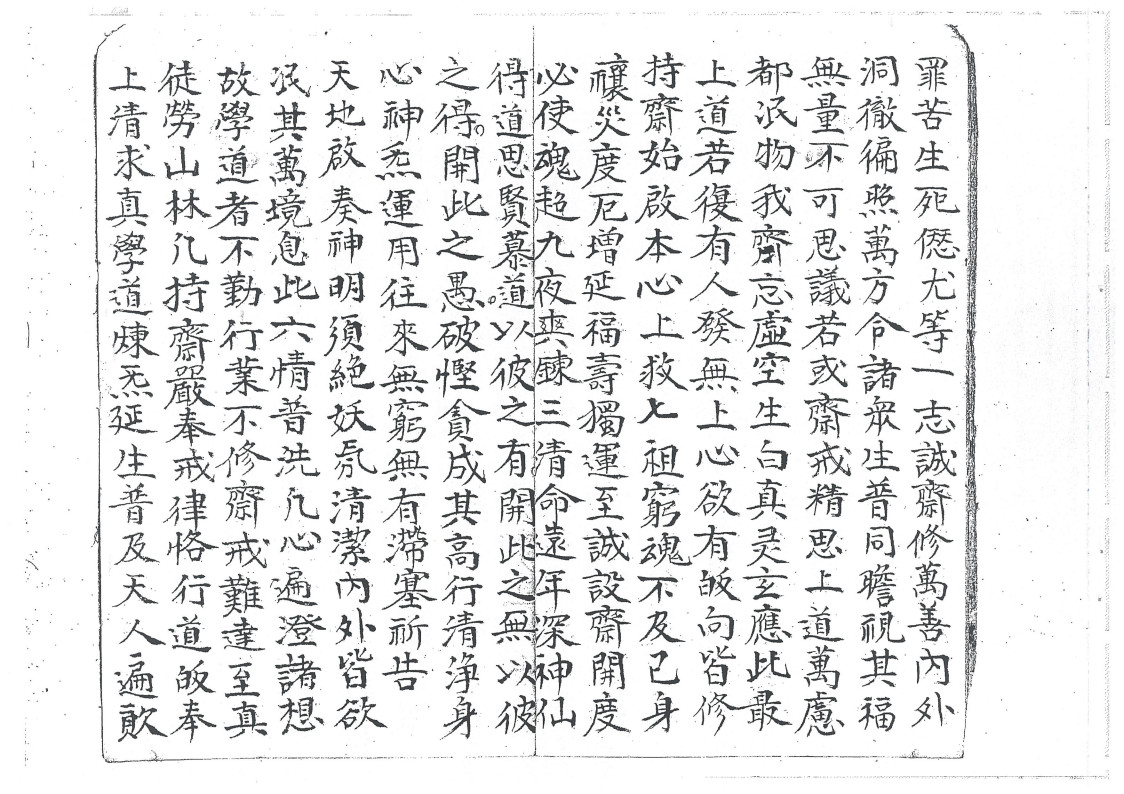 罪苦生死愆尤等一志誠齋修萬善內外
洞徹徧照萬方令諸衆生普同瞻視其福
無量不可思議若或齋戒精思上道萬慮
都泯物我齊忘虛空生白真灵玄應此最
上道若復有人發無上心欲有皈向皆修
持齋始啟本心上救七祖窮魂不及己身
禳災度厄增延福壽獨運至誠設齋開度
必使魂超九夜爽鍊三清命遠年深神仙
得道思賢慕道以彼之有開此之無以彼
之得開此之愚破慳貪成其高行清淨身
心神炁運用往來無窮無有滯塞祈告
天地啟奏神明須絶妖氛清潔內外皆欲
泯其萬境息此六情普洗凡心遍澄諸想
故學道者不勤行業不修齋戒難達至真
徒勞山林凡持齋嚴奉戒律恪行道皈奉
上清求真學道煉炁延生普及天人遍歕